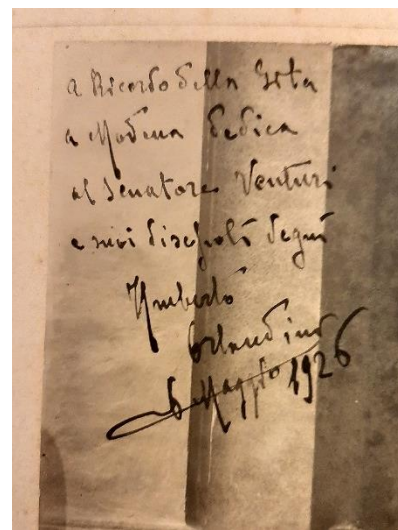 a Ricordo della Gita
a Modena dedica
al Senatore Venturi
e suoi discepoli degni
Umberto
Orlandini
6 Maggio 1926